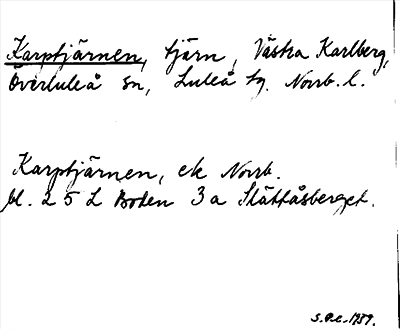 Karptjärnen, tjärn, Västra Karlberg,
Överluleå sn, Luleå tg. Norrb. l.
Karptjärnen, ek Norrb.
bl. 25 L Boden 3a Slättåsberget.
S.O.C. 1959.